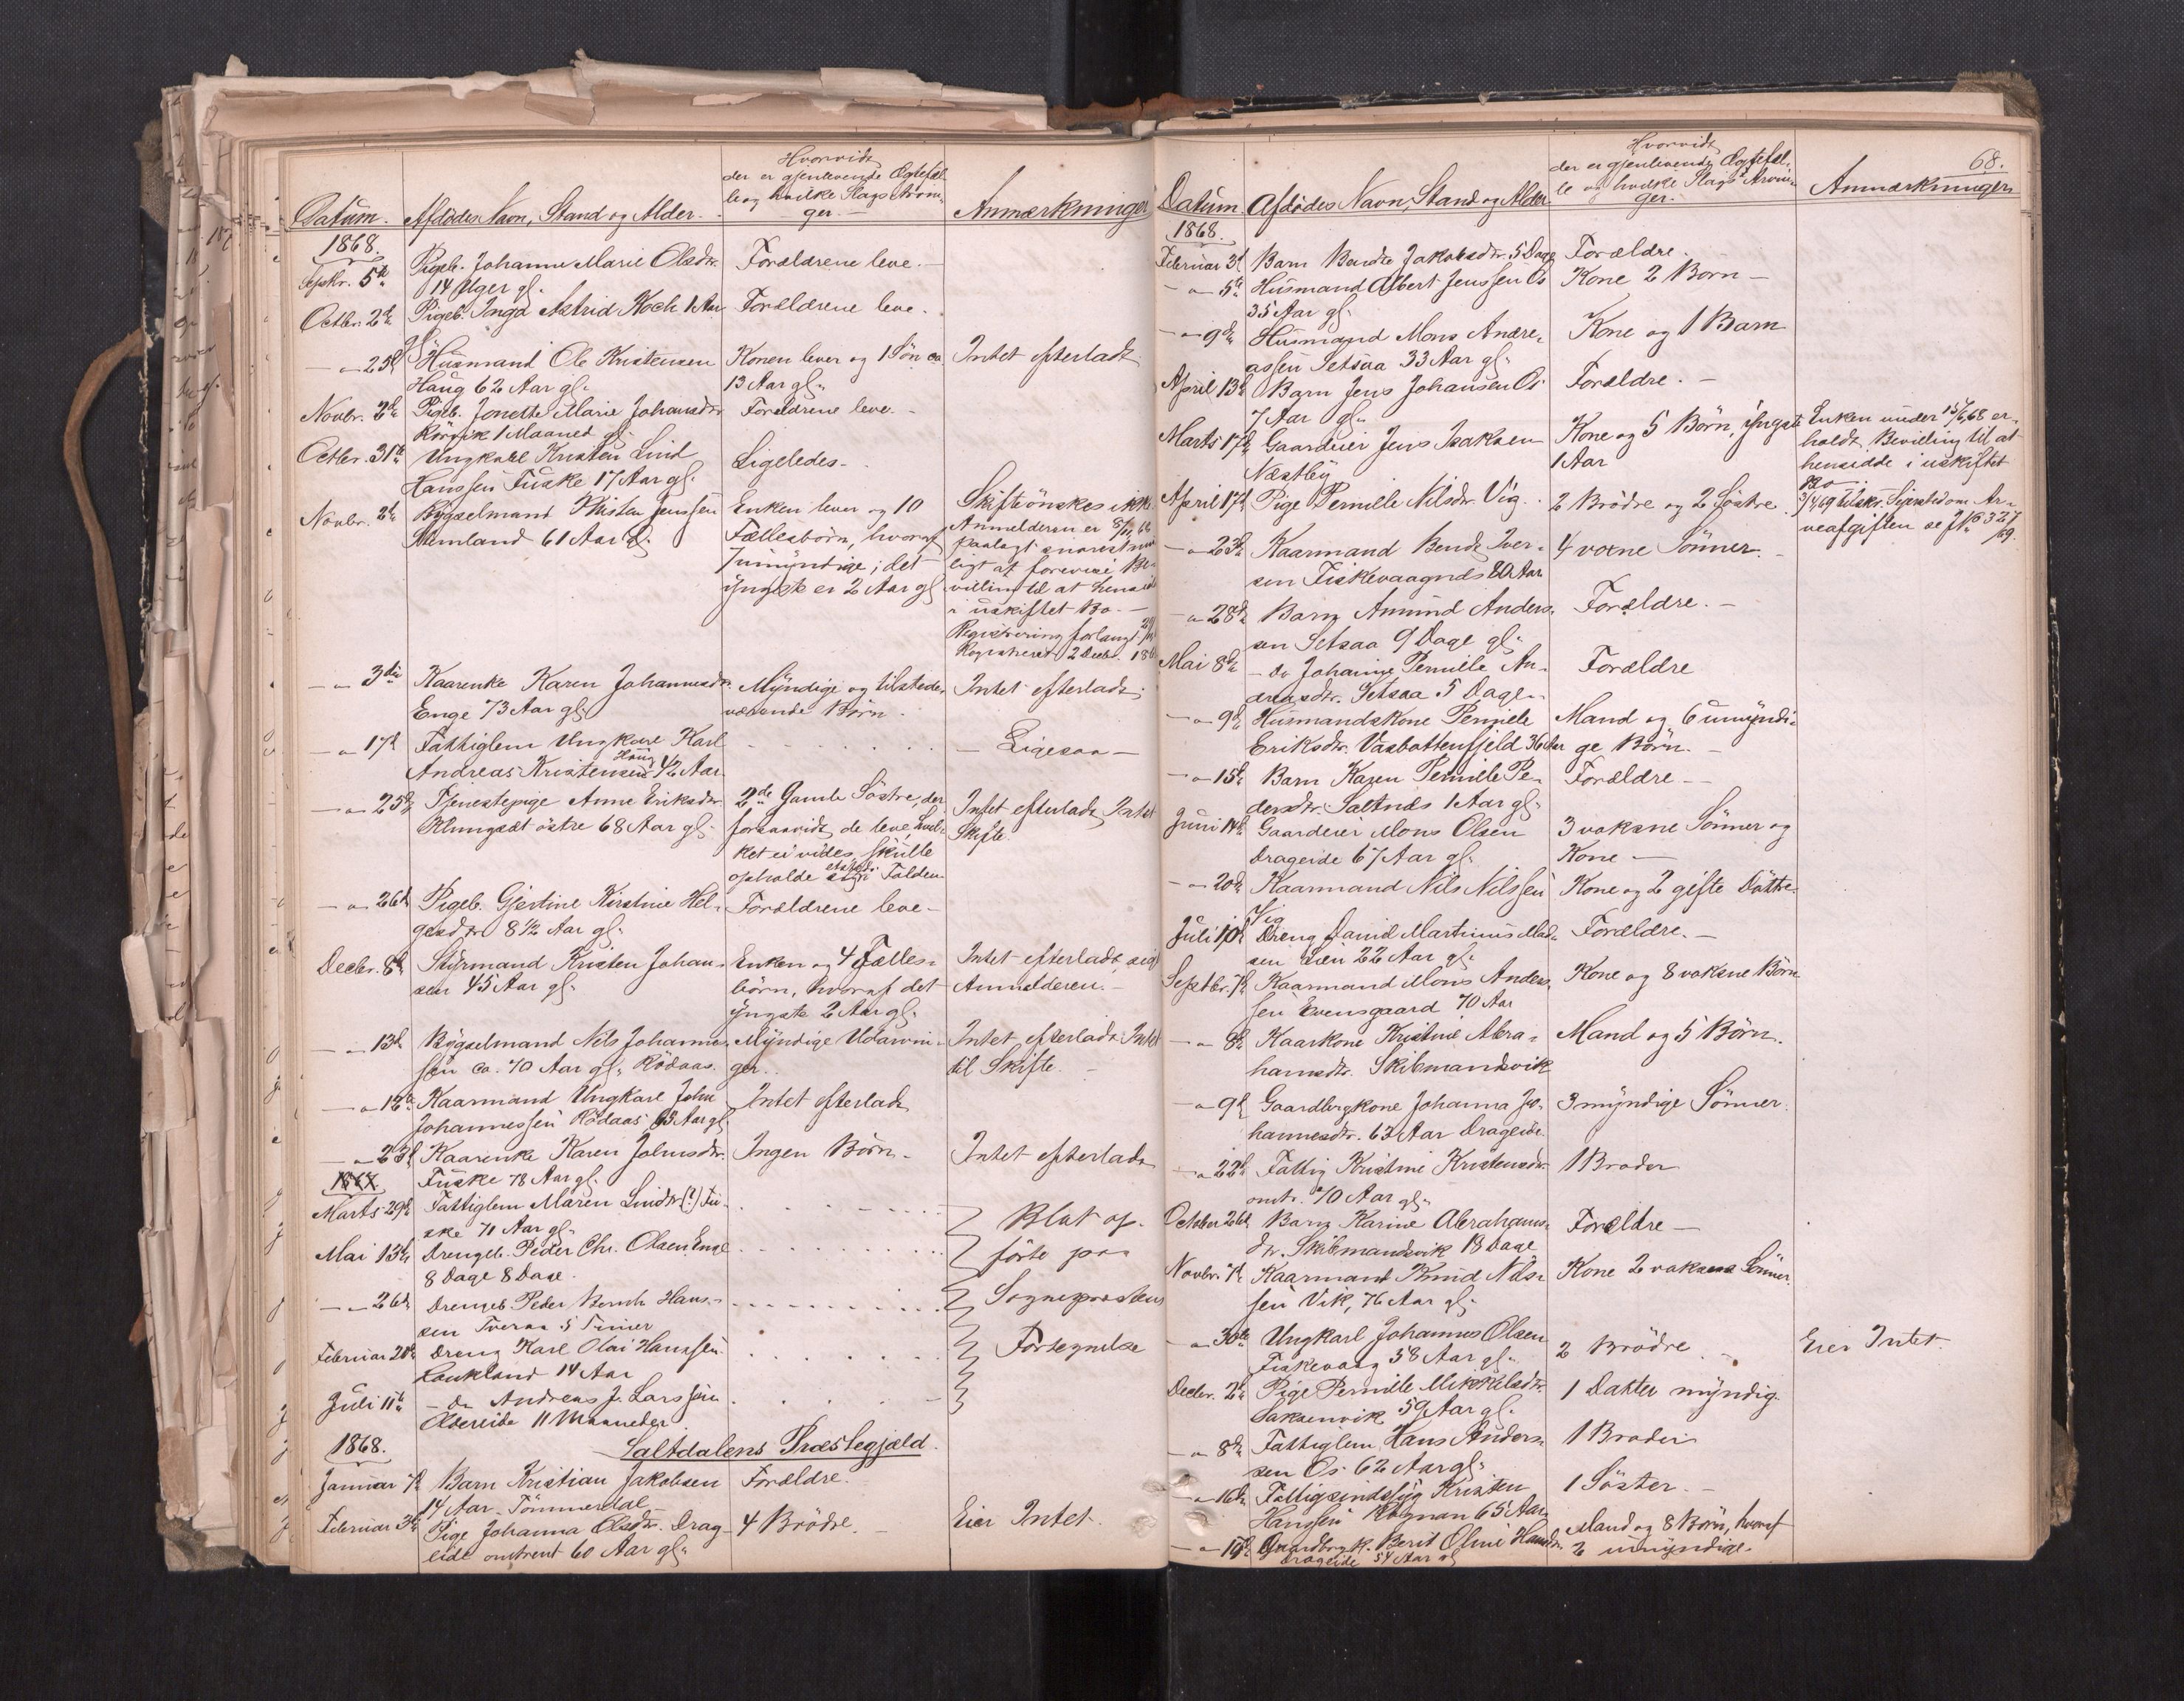 Datum.
Afdödes Navn, Stand og Alder.
Hvorvidt
der er gjenlevende Ægtefæl-
le og hvilke Slags Arvin-
ger.
Anmærkninger
1868.
Septbr. 5te
Pigeb. Johanne Marie Olsdtr.
14 Uger gl.
Forældrene leve.
Octbr. 2de
Pigeb. Inga Astrid Koch 1 Aar
gl.
Forældrene leve.
- " 25de
Husmand Ole Kristensen
Haug 62 Aar gl.
Konen lever og 1 Søn ca.
13 Aar gl.
Intet efterladt
Novbr. 2de
Pigeb. Jonette Marie Johansdtr.
Rörvik 1 Maaned gl.
Forældrene leve.
Octbr. 31te
Ungkarl Kristen Lind
Hanssen Fuske 17 Aar gl.
Ligeledes.
Novbr. 2de
Bygselmand Kristen Jenssen
61 Aar gl.
Enken lever og 10
Fællesbörn, hvoraf
7 umyndige; det
yngste er 2 Aar gl.
Skifte önskes ikke
Anmelderen er
paalagt snarest mu-
ligt at forevise Be-
villing til at hensidde
i uskiftet Bo.
Registrering forlangt
Registreret 2 Decbr.
- " 3die
Kaarenke Karen Johannesdtr.
Enge 73 Aar gl.
Myndige og tilstede-
værende Börn.
Intet efterladt.
- " 17de
Fattiglem Ungkarl Karl
Andreas Kristensen Haug 42 Aar
Ligesaa
- " 25de
Tjenestepige Anne Eriksdtr.
Klungset östre 68 Aar gl.
2de Gamle Söstre, der
forsaavidt de leve, hvil-
ket ei vides, skulle
opholde sig etsteds i Folden
Intet efterladt, Intet
Skifte.
- " 26de
Pigeb. Gjertine Kirstine Hel-
gesdtr. 8 1/2 Aar gl.
Forældrene leve
Decbr. 8de
Styrmand Kristen Johan-
sen 45 Aar gl.
Enken og 4 Fælles-
börn, hvoraf det
yngste 2 Aar gl.
Intet efterladt, siger
Anmelderen.
- " 13de
Bygselmand Nils Johannes-
sen ca. 70 Aar gl. Rödaas.
Myndige Udarvin-
ger.
Intet efterladt Intet
til Skifte.
- " 12te
Kaarmand Ungkarl John
Johannessen Rödaas 63 Aar gl.
Intet efterladt
- " 23de
Kaarenke Karen Johnsdtr.
Fuske 78 Aar gl.
Ingen Börn.
Intet efterladt
Marts 29de
Fattiglem Maren Lindtr. (?) Fu-
ske 71 Aar gl.
Mai 13de
Drengeb. Peder Chr. Olsen Enge
8 Dage 8 Dage.
- " 26de
Drengeb. Peder Bernh. Hans-
sen Tveraa 5 Timer
Februar 20de
Dreng Karl Olai Hanssen
Laukland 14 Aar
Juli 11te
- do Andreas J. Larssen
Alvereide 11 Maaneder
Blot op-
förte paa
Sognepræstens
Fortegnelse
1868.
Saltdalens Præstegjæld.
Januar 7de
Barn Kristian Jakobsen
14 Aar. Tömmerdal
Forældre.
Februar 3de
Pige Johanna Olsdtr. Drag-
eide omtrent 60 Aar gl.
4 Brödre.
Eier Intet.
68.
Datum.
Afdödes Navn, Stand og Alder.
Hvorvidt
der er gjenlevende Ægtefæl-
le og hvilke Slags Arvin-
ger.
Anmærkninger
1868.
Februar 3de
Barn Jakobsdtr. 5 Dage
Forældre.
- " 5te
Husmand Albert Jenssen Os
35 Aar gl.
Kone 2 Börn
- " 9de
Husmand Mons Andre-
assen Setsaa 33 Aar gl.
Kone og 1 Barn
April 13de
Barn Jens Johansen Os
7 Aar gl.
Forældre.
Marts 17de
Gaardeier Jens Isaksen
Næstby
Kone og 5 Börn, yngste
1 Aar
Enken under 15/6 68 er-
holdt Bevilling til at
hensidde i uskiftet
Bo
April 17de
Pige Pernille Nilsdtr. Vig.
2 Brödre og 2 Söstre
- " 23de
Kaarmand Bendt Iver-
sen Fiskevaagnes 80 Aar
4 voxne Sönner.
- " 28de
Barn Amund Anders-
sen Setsaa 9 Dage gl.
Forældre.
Mai 8de
- do Johanne Pernille An-
dreasdtr. Setsaa 5 Dage.
Forældre
- " 9de
Husmandskone Pernille
Eriksdtr. Vasbottenfjeld 36 Aar
Mand og 6 umyndi-
ge Börn.
- " 15de
Barn Karen Pernille Pe-
dersdtr. Saltnæs 1 Aar gl.
Forældre
Juni 14de
Gaardeier Mons Olsen
Drageide 67 Aar gl.
3 voksne Sönner og
Kone
- " 20de
Kaarmand Nils Nilssen
Vig
Kone og 2 gifte Döttre.
Juli 10de
Dreng David Martinus Mad-
sen 22 Aar gl.
Forældre.
Septbr. 7de
Kaarmand Mons Anders-
sen Evensgaard 70 Aar
Kone og 8 voksne Börn
- " 8de
Kaarkone Kristine Abra-
hamsdtr. Skibmandsvik
Mand og 5 Börn.
- " 9de
Gaardbrgkone Johanna Jo-
hannesdtr. 63 Aar Drageide.
3 myndige Sönner.
- " 22de
Fattig Kristine Kristensdtr.
omtr. 70 Aar gl.
1 Broder
October 26de
Barn Karine Abrahams-
dtr. Skibmandsvik 13 Dage
Forældre
Novbr. 7de
Kaarmand Knud Nils-
sen Vik, 76 Aar gl.
Kone 2 voksne Sönner.
- " 30te
Ungkarl Johannes Olsen
Fiskevaag 58 Aar gl.
2 Brödre
Eier Intet.
Decbr. 2de
Pige Pernille Mikkelsdtr.
Saksenvik 59 Aar gl.
1 Datter myndig.
- " 8de
Fattiglem Hans Anders-
sen Os 62 Aar gl.
1 Broder
- " 16de
Fattigsindssyg Kristen
Hanssen Rognan 65 Aar
1 Söster.
- " 19de
Gaardbrgk. Berit Oline Hansdtr.
Drageide 54 Aar gl.
Mand og 8 Börn, hvoraf
2 umyndige.